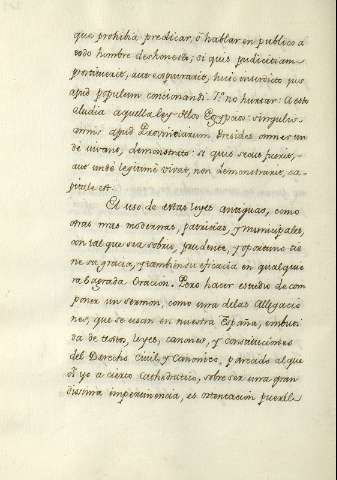 que prohibia predicar, ò hablar en publico a
todo hombre deshonesto; si quis pudicitiam
prostituerit, aut expugnarit, huic interdicto jus
apud populum concionandi. Yº no hurtar: a esto
aludia aquella ley de los Egypcios: singulis
annis apud Provinciarum Presides omnes un
de vivant, demonstrato: si quis secus fuerit,
aut unde legitimè vivat, non demonstrarit, ca-
pitale est.
El uso de estas leyes antiguas, como
otras mas modernas, patricias, y municipales,
con tal que sea sobrio, prudente, y oportuno tie-
ne su gracia, y tambien su eficacia en qualquie
ra Sagrada Oracion. Pero hacer estudio de com
poner un sermon, como una de las Allegacio
nes, que se usan en nuestra España, embuti
da de textos, leyes, canones, y constituciones
del Derecho Civil, y Canonico, parecido al que
oì yo a cierto Cathedratico, sobre ser una gran
dissima impertinencia, es ostentacion pueril